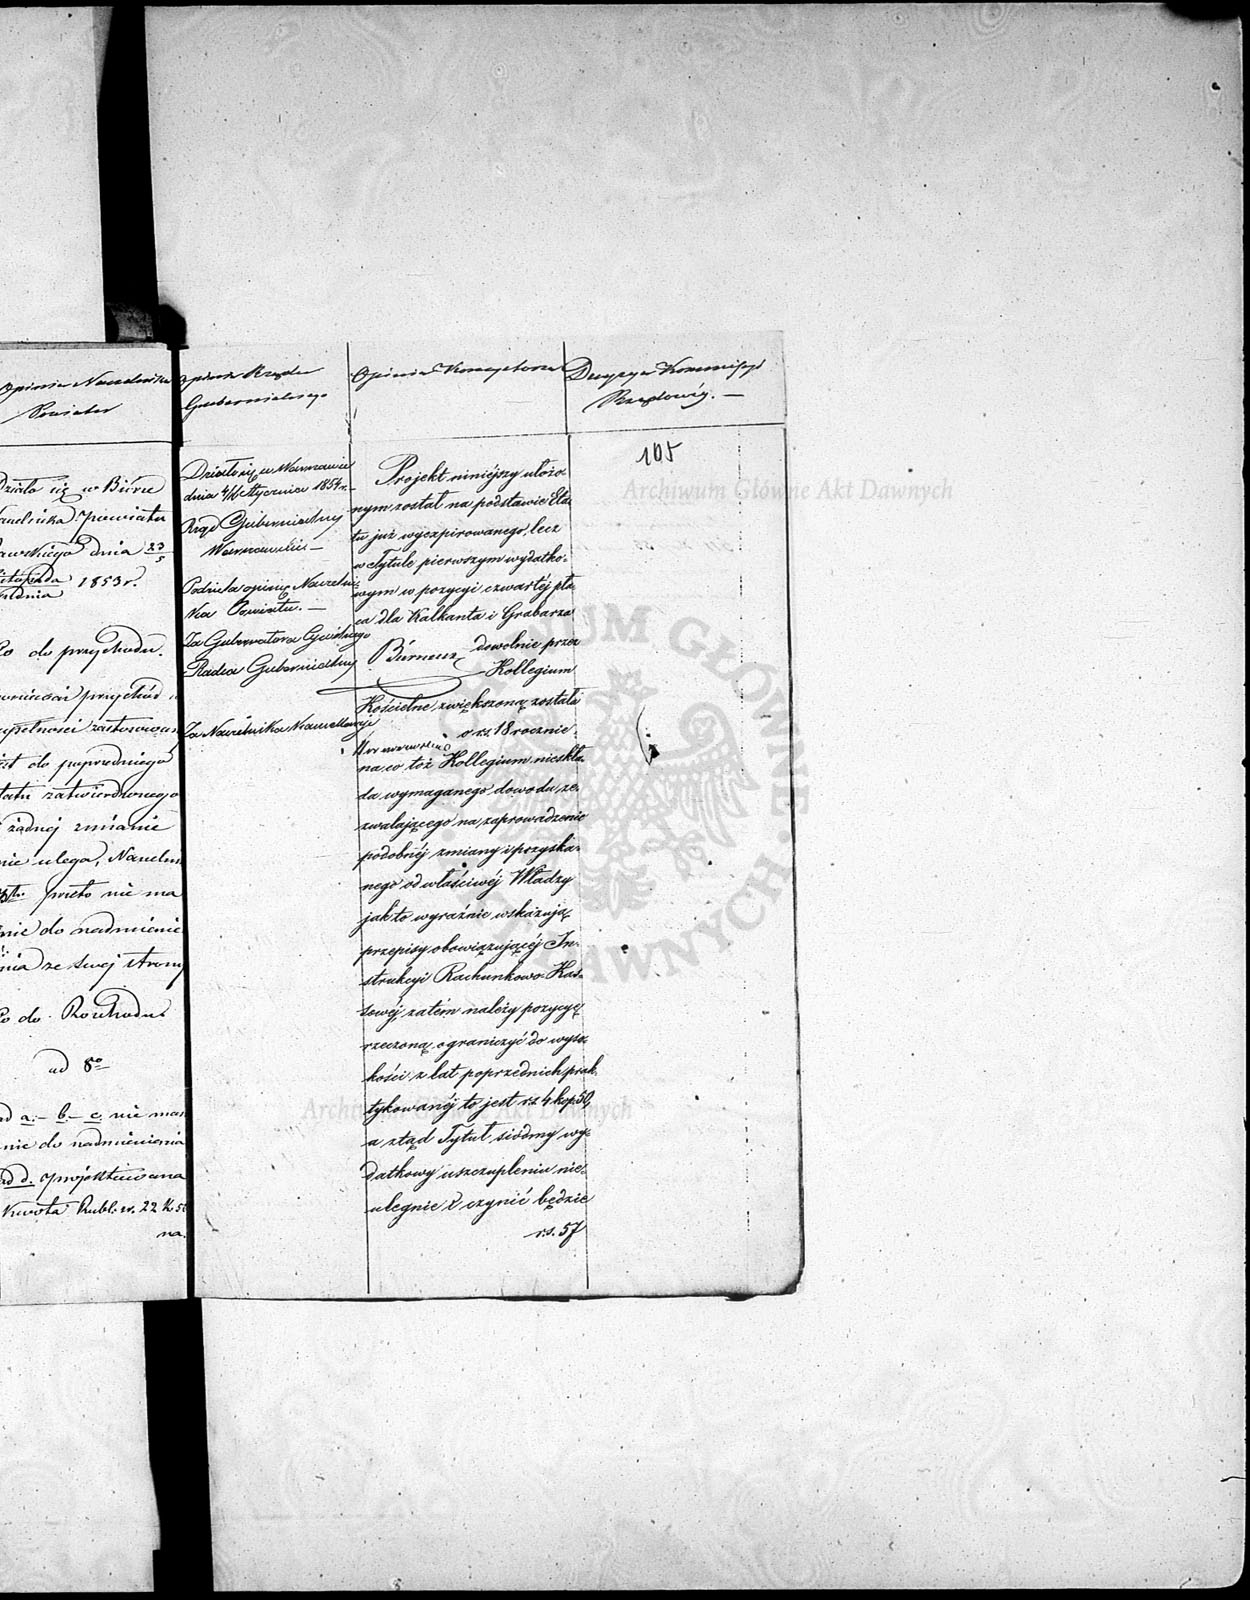 Opinia Naczelnika
Powiatu
Działo się w Biurze
Naczelnika Powiatu
dnia 23/5
Listopada
Grudnia 1853 r.
Co do przychodu.
przychód
zastosowany
do poprzedniego
Etatu zatwierdzonego
i żadnej zmianie
nie ulega, Naczelnik
Ptu. przeto nie ma
nic do nadmienie-
nia ze swej strony
Co do Rozchodu
ad 8º
ad a.- b.- c. nie ma
nic do nadmienienia
ad d. projektowana
kwota Rubl. sr. 22 K 50
na.
Opinia Rządu
Gubernialnego
Działo się w Warszawie
dnia Stycznia 1854 r.
Rząd Gubernialny
Warszawski —
Podziela opinię Naczelni-
ka Powiatu. —
Za Gubernatora Cywilnego
Radca Gubernialny
Za Naczelnika Kancellaryi
Opinia Korrektora
Projekt niniejszy ułożo-
nym został na podstawie Eta-
tu już wyexpirowanego, lecz
w Tytule pierwszym wydatko-
wym w pozycyi czwartéj pła-
ca dla Kalkanta i Grabarza
dowolnie przez
Kollegium
Kościelne zwiększoną została
o rs. 18 rocznie,
na co toż Kollegium nieskła-
da wymaganego dowodu, ze-
zwalającego na zaprowadzenie
podobnéj zmiany i pozyska-
nego od właściwéj Władzy
jak to wyraźnie wskazują
przepisy obowiązującéj In-
strukcyi Rachunkowo-Kas-
sowéj, zatém należy pozycyę
rzeczoną ograniczyć do wyso-
kości z lat poprzednich prak-
tykowanéj to jest rs. 4 kop. 50,
a ztąd Tytuł siódmy wy-
datkowy uszczupleniu nie-
ulegnie i czynić będzie
rs. 57
Decyzya Kommissyi
Rządowéj. —
105
Archiwum Główne Akt Dawnych
Archiwum Główne Akt Dawnych
ARCHIWUM GŁÓWNE AKT DAWNYCH